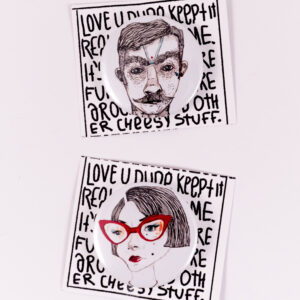 LOVE U DUDE KEEPT IT
REA ME.
IT' RE
FU RE
AROU OTH
ER CHEESY STUFF.
LOVE U DUDE KEEPT IT
REA ME.
IT'S RE
FU RE
ARO OTH
ER CHEESY STUFF.